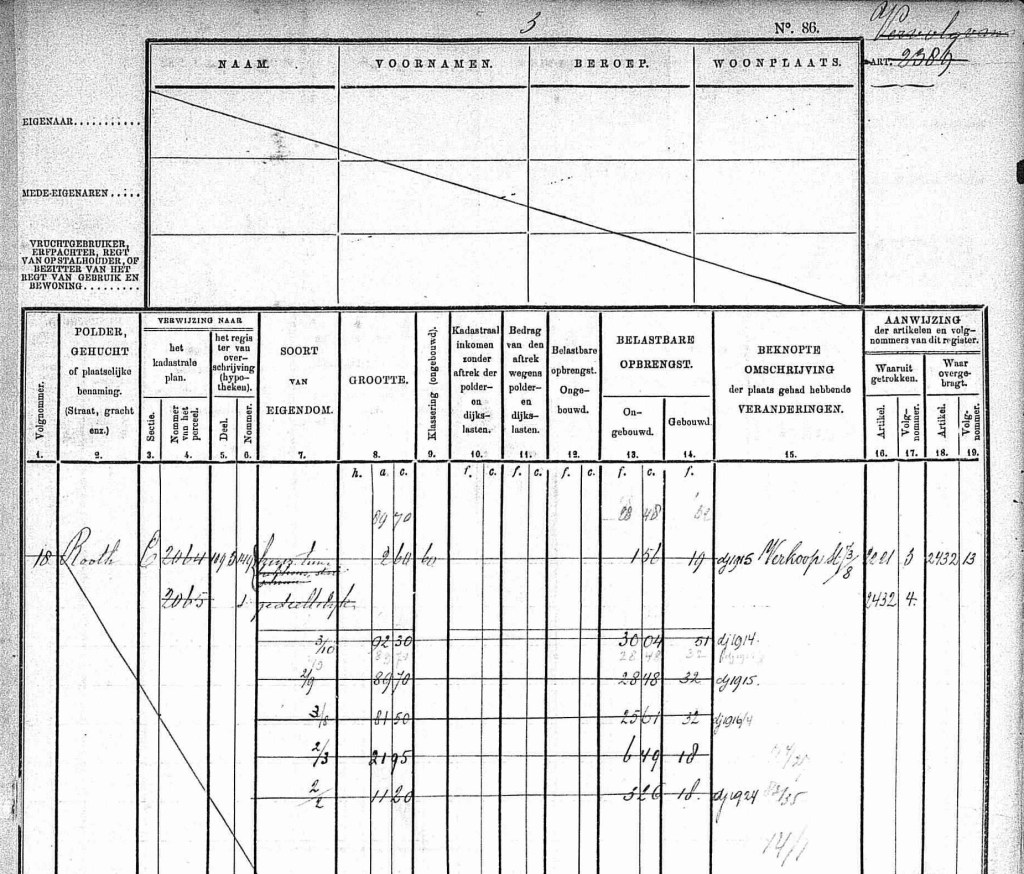 3
Nº. 86.
Vervolg van
ART. 2389
NAAM. VOORNAMEN. BEROEP. WOONPLAATS.
EIGENAAR...........
MEDE-EIGENAREN.....
VRUCHTGEBRUIKER,
ERFPACHTER, REGT
VAN OPSTALHOUDER, OF
BEZITTER VAN HET
REGT VAN GEBRUIK EN
BEWONING.........
Volgnommer.
POLDER,
GEHUCHT
of plaatselijke
benaming.
(Straat, gracht
enz.)
VERWIJZING NAAR
het
kadastrale
plan.
Sectie.
Nommer
van het
perceel.
het regis
ter van
over-
schrijving
(hypo-
theken).
Deel.
Nommer.
SOORT
VAN
EIGENDOM.
GROOTTE.
Klassering (ongebouwd).
Kadastraal
inkomen
zonder
aftrek der
polder-
en
dijks-
lasten.
Bedrag
van den
aftrek
wegens
polder-
en
dijks-
lasten.
Belastbare
opbrengst.
Onge-
bouwd.
BELASTBARE
OPBRENGST.
On-
gebouwd.
Gebouwd.
BEKNOPTE
OMSCHRIJVING
der plaats gehad hebbende
VERANDERINGEN.
AANWIJZING
der artikelen en volg-
nommers van dit register.
Waaruit
getrokken.
Artikel.
Volg-
nommer.
Waar
overge-
bragt.
Artikel.
Volg-
nommer.
1. 2. 3. 4. 5. 6. 7. 8. 9. 10. 11. 12. 13. 14. 15. 16. 17. 18. 19.
h. a. c. f. c. f. c. f. c. f. c. f.
89 70 28 48 32
18 Rooth C 2064 2 60 60 1 56 19 dj 1915 Verkoop 2221 3 2432 13
2065 gedeeltelijk 2432 4.
3/10 92 30 30 04 51 dj 1914.
28 48 32
2/9 89 70 28 48 32 dj 1915.
3/8 81 50 25 61 32 dj 1916/4
2/3 21 95 6 49 18
2/2 11 20 3 26 18. dj 1924
14/1